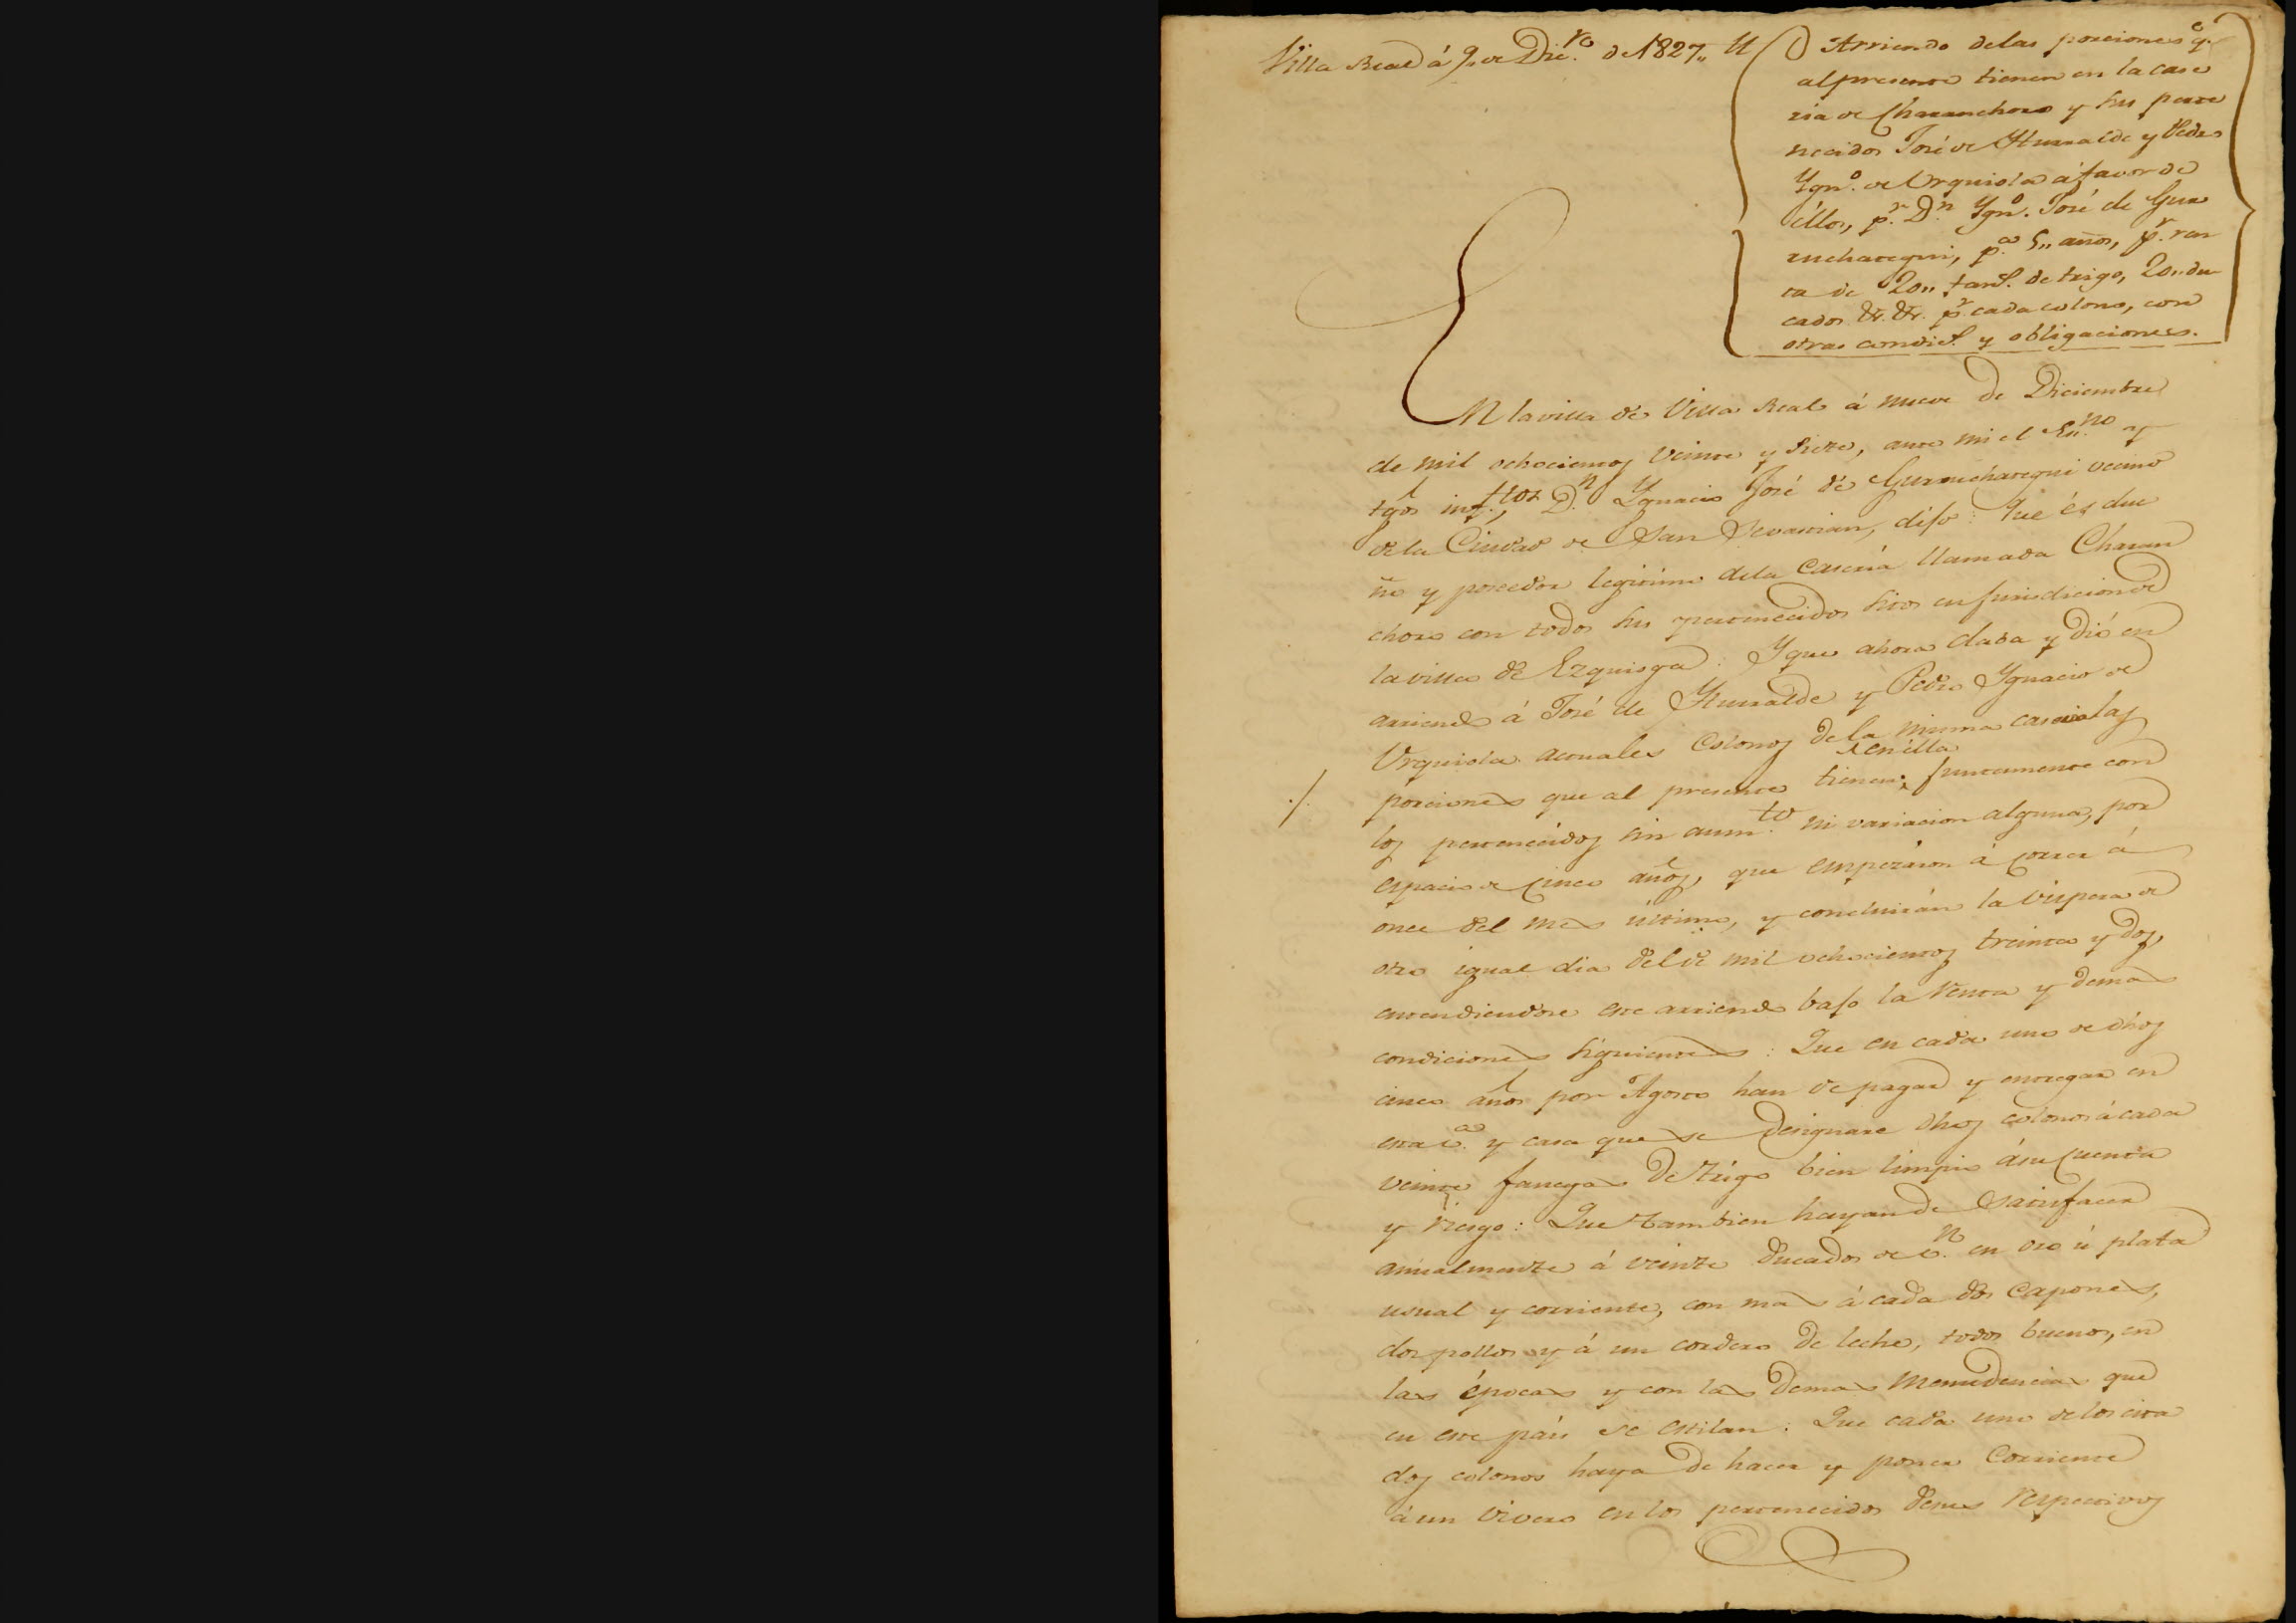 Villa Real á 9,, de Dic.re de 1827,,
Arriendo delas porciones q.e
al presente tienen en la case
ria de Charanchoro y sus perte
necidos José de Yturralde y Pedro
Ygn.o de Urquiola á favor de
éllos, p.r D.n Ygn.o José de Guru
ruchategui, p.a 5,, años, p.r ren
ta de 20,, fan.s de trigo, 20,, du
cados &. &. p.r cada colono, con
otras condic.s y obligaciones.
EN la villa de Villa Real á nueve de Diciembre
de mil ochocientos veinte y siete, ante mi el Es.no y
tgos inf.tos D.n Ygnacio José de Guruchategui vecino
dela Ciudad de San Sevastian, dijo: Que és due
ño y poseedor legitimo dela Caseria llamada Charan
choro con todos sus pertenecidos sitos en jurisdicion de
la villa de Ezquioga: Y que ahora daba y dió en
arriendo á José de Yturralde y Pedro Ygnacio de
Urquiola actuales Colonos de la misma caseria las
./. porciones que al presente tienen en élla juntamente con
los pertenecidos sin aum.to ni variacion alguna, por
espacio de cinco años, que empezaron á correr á
once del mes último, y concluirán la vispera de
otro igual dia del de mil ochocientos treinta y dos,
entendiendose este arriendo bajo la renta y demas
condiciones siguientes: Que en cada uno de dhos
cinco años por Agosto han de pagar y entregar en
esta v.a y casa que se designare dhos colonos á cada
veinte fanegas de trigo bien limpio á su cuenta
y riesgo: Que tambien hayan de satisfacer
anualmente á veinte ducados de v.n en oro ú plata
usual y corriente, con mas á cada dos Capones,
dos pollos y á un cordero de leche, todos buenos, en
las épocas y con las demas menudencias que
en este páis se estilan: Que cada uno delos cita
dos colonos haya de hacer y poner Corriente
á un vivero en los pertenecidos de sus respectivos